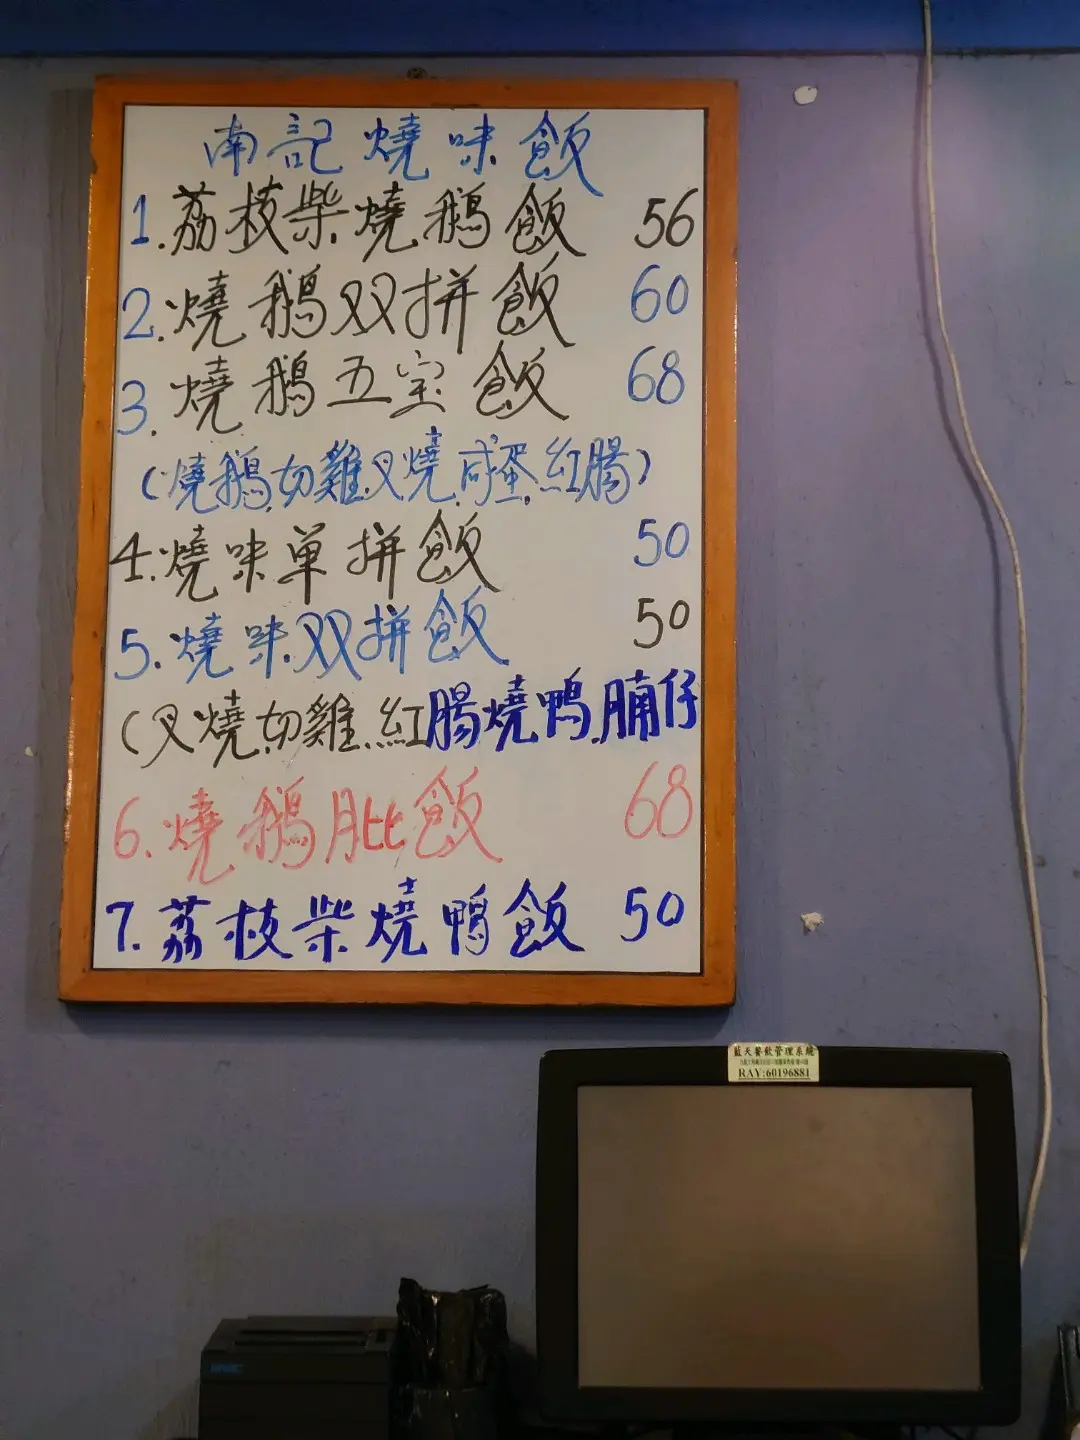 南記燒味飯
1.荔枝柴燒鵝飯 56
2.燒鵝双拼飯 60
3.燒鵝五宝飯 68
(燒鵝.切雞.叉燒.咸蛋.紅腸)
4.燒味単拼飯 50
5.燒味双拼飯 50
(叉燒.切雞.紅腸燒鴨.腩仔
6.燒鵝肶飯 68
7.荔枝柴燒鴨飯 50
藍天餐飲管理系統
RAY:60196881